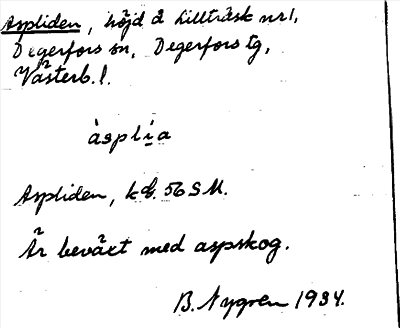 Aspliden, höjd å Lillträsk nr 1,
Degerfors sn, Degerfors tg,
Västerb. l.
àsplia
Aspliden, k bl. 56 S M.
Är beväxt med aspskog.
B. Nygren 1934.